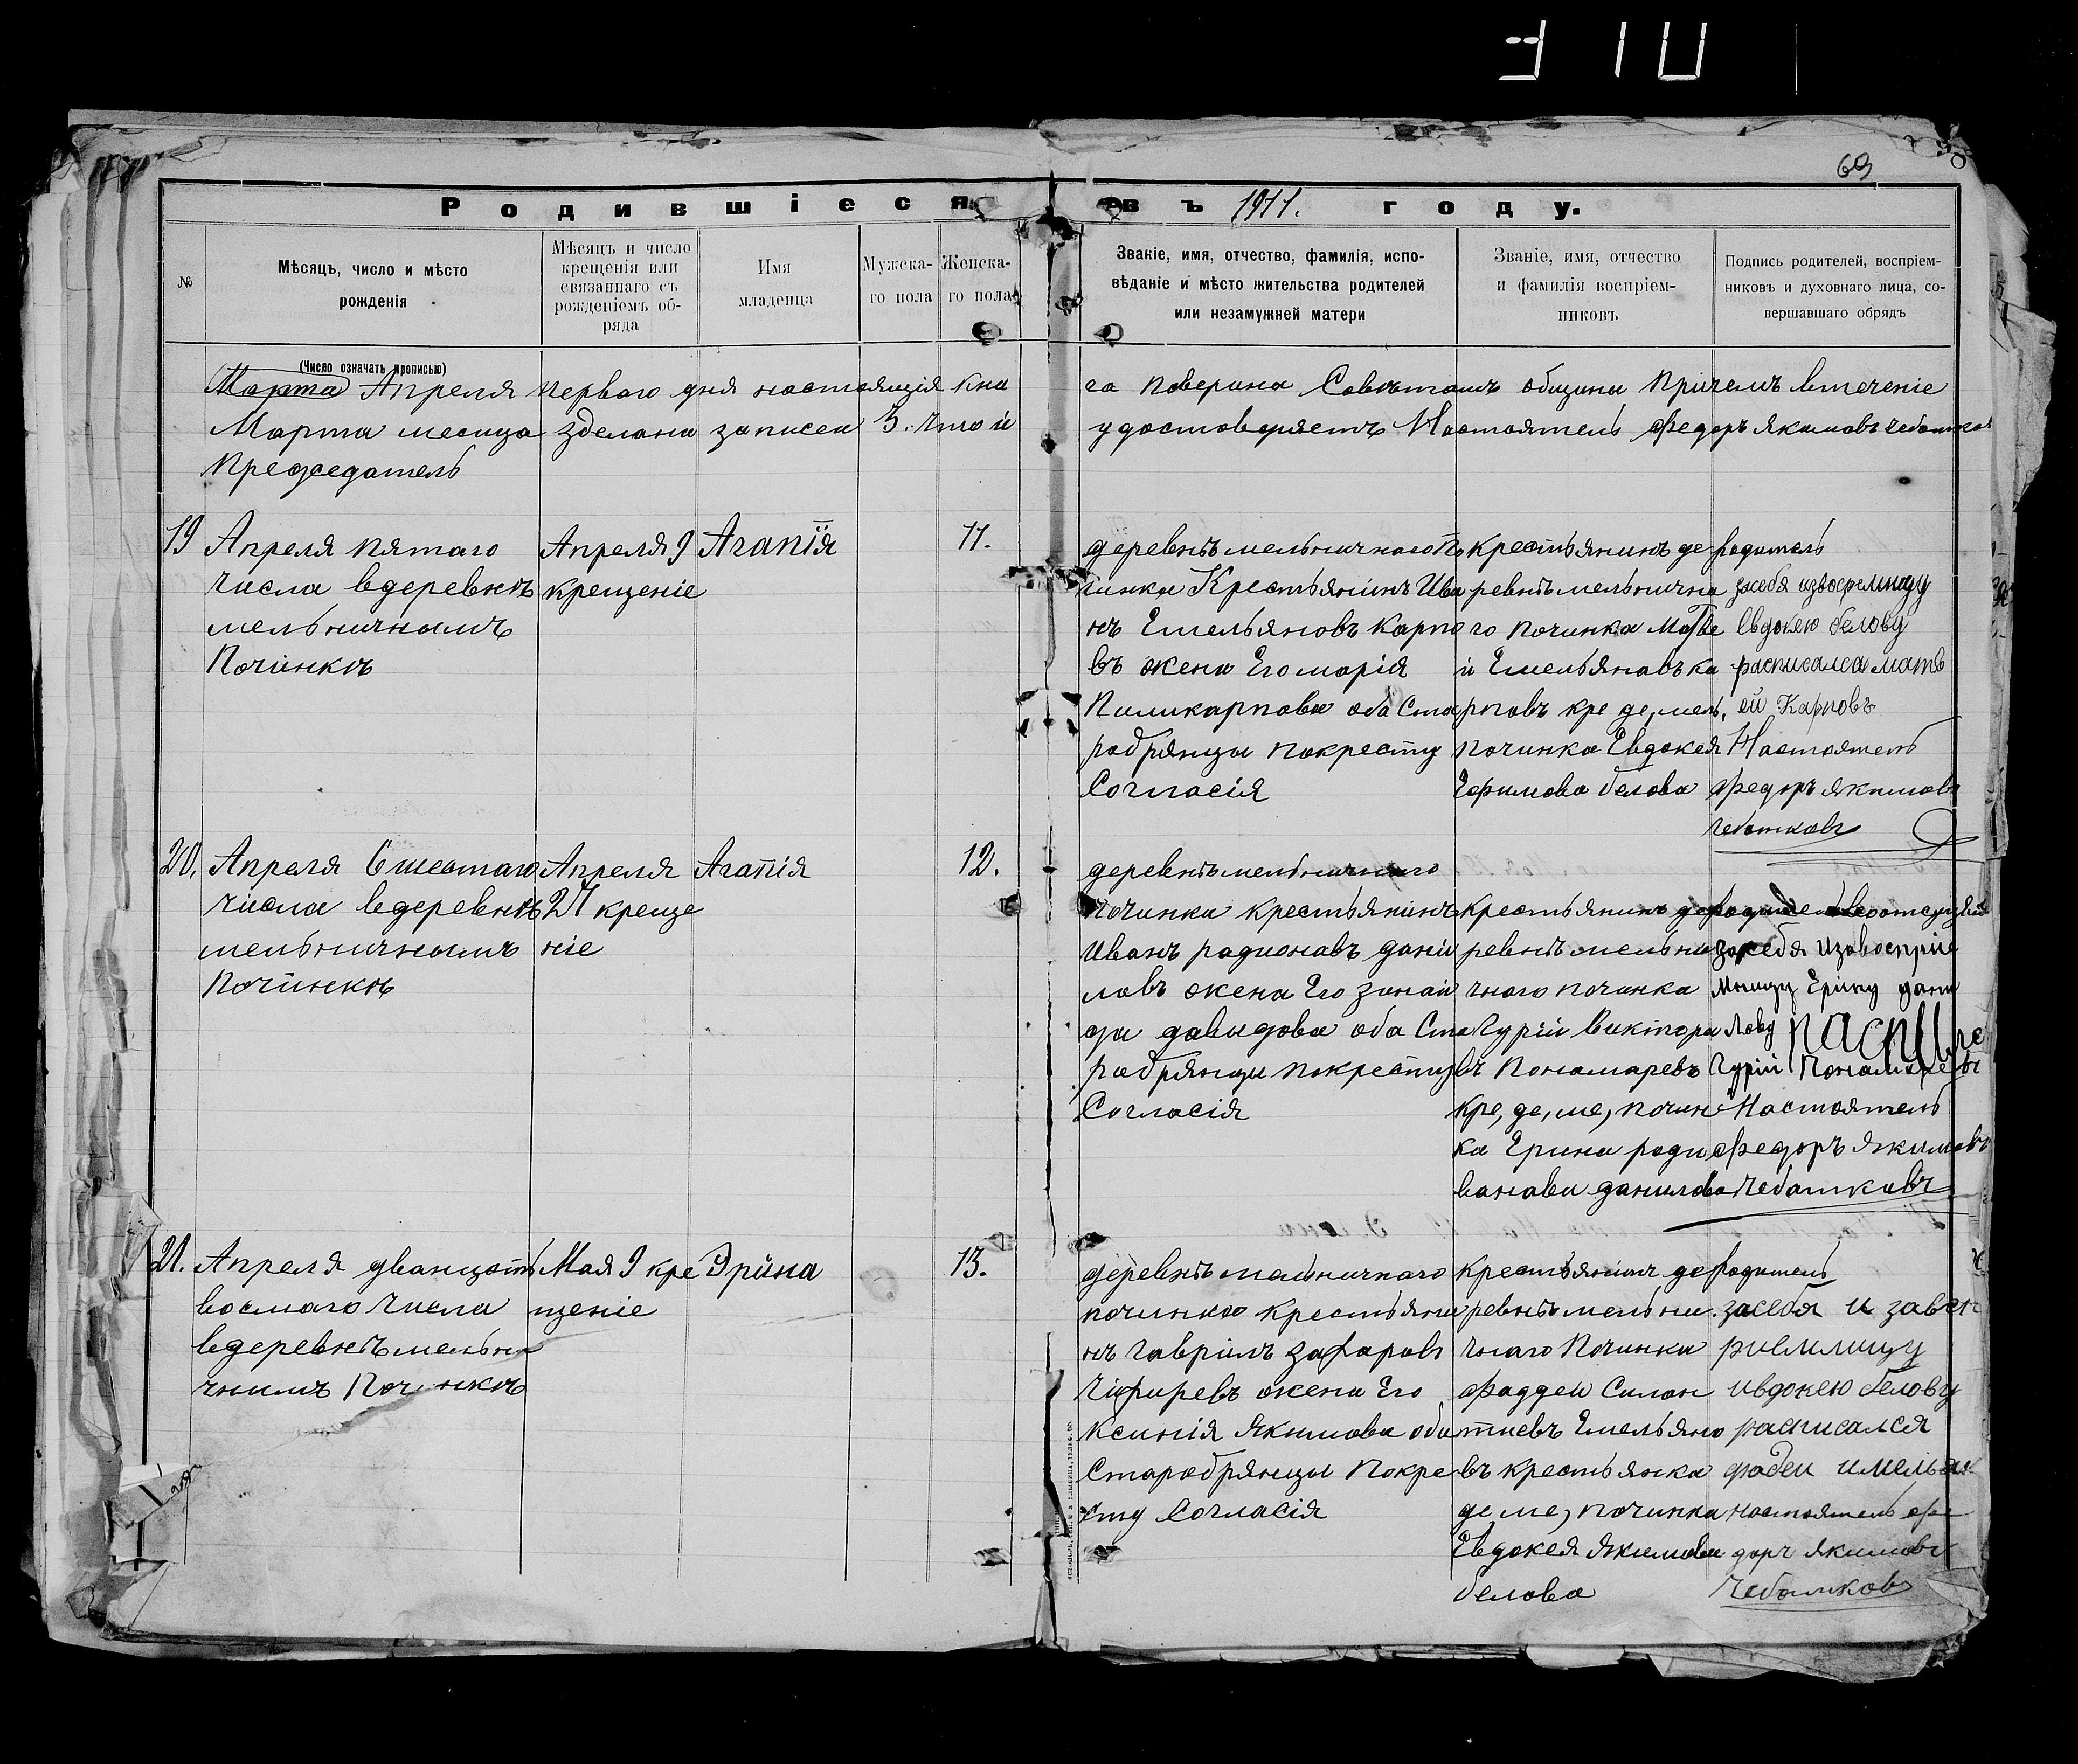 310
69
Родившіеся въ 1911. году.
№
Мѣсяцъ, число и мѣсто
рожденія
Мѣсяцъ и число
крещенія или
связаннаго съ
рожденіемъ об-
ряда
Имя
младенца
Мужска-
го пола
Женска-
го пола
Званіе, имя, отчество, фамилія, испо-
вѣданіе и мѣсто жительства родителей
или незамужней матери
Званіе, имя, отчество
и фамилія воспріем-
никовъ
Подпись родителей, воспріем-
никовъ и духовнаго лица, со-
вершавшаго обрядъ
(Число означать прописью)
Марта Апреля перваго дня настоящія кни
га поверина Советомъ общины причемъ втеченіе
Марта месица зделана записеи 3. что и
удостоверяетъ Настоятель Федоръ Якимовъ Чеботков
Председатель
19
Апреля пятаго
числа вдеревнѣ
мельничнамъ
Починкѣ
Апреля 9
крещеніе
Агапія
11.
деревнѣ мельничнаго По
чинка Крестьянинъ Ива
нъ Емельяновъ Карпо
въ жена Его марія
Пиликарпова оба Ста
робрянцы покресту
Согласія
крестьянинъ де
ревнѣ мельнична
го починка Матве
й Емельяновъ Ка
рповъ кре де, мель,
починка Евдокея
Ефимова белова
Родитель
засебя извосремницу
Евдокею белову
расписался матв
ей Карповъ
Настоятель
Федоръ Якимовъ
Чеботковъ
20.
Апреля 6 шестаго
числа вдеревнѣ
мельничнымъ
Починкѣ
Апреля
21 креще
ніе
Агапія
12.
деревнѣ мельничнаго
починка крестьянинъ
Иванъ радионавъ дани
ловъ жена Его зинаи
да давидова оба Ста
робрянцы покресту
Согласія
Крестьянинъ де
ревнѣ мельни
чного починка
Гурій Виктора
въ Пономаревъ
кре, де, ме, почин
ка Ерина роди
ванава данилова
засебя Изавосприе
мницу Ерину дани
лову
Гурій Пономаревъ
Настоятель
Федоръ Якимовъ
Чеботковъ
21.
Апреля дванцоть
восмаго числа
вдеревнѣ мельни
чнимъ Починкѣ
Мая 9 кре
щеніе
Эрина
13.
деревнѣ мельничнаго
починка крестьяни
нъ Гаврилъ
жена Его
Ксинія Якимова оба
Старобрянцы Покре
сту Согласія
крестьянинъ де
ревнѣ мельни
чнаго Починка
Фаддеи Силан
тиевъ Емельяно
въ крестьянка
де ме, починка
Евдокея Якимова
белова
Родитель
засебя и
ивдокею белову
расписался
фадеи
настоятель фе
доръ Якимовъ
Чеботковъ